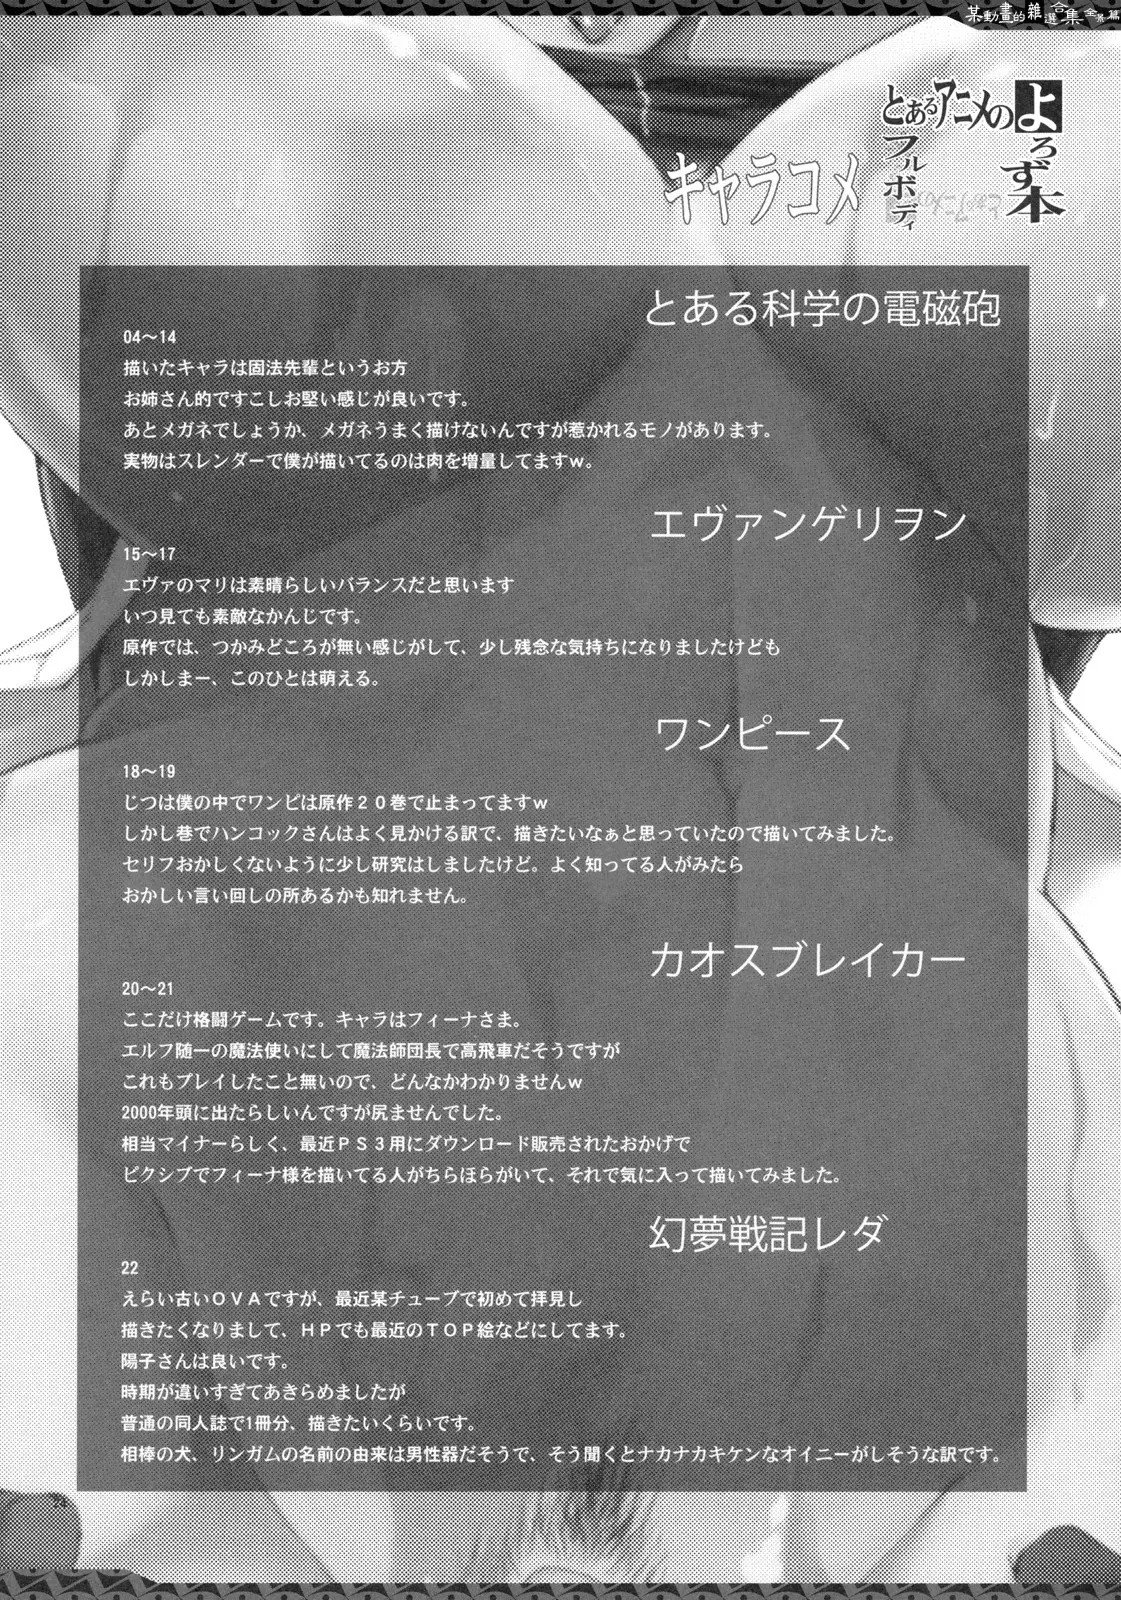 某動畫的雜選合集全景篇
とあるアニメの
フルボディ
よろず本
キャラコメ
とある科学の電磁砲
04～14
描いたキャラは固法先輩というお方
お姉さん的ですこしお堅い感じが良いです。
あとメガネでしょうか、メガネうまく描けないんですが惹かれるモノがあります。
実物はスレンダーで僕が描いてるのは肉を増量してますｗ。
エヴァンゲリヲン
15～17
エヴァのマリは素晴らしいバランスだと思います
いつ見ても素敵なかんじです。
原作では、つかみどころが無い感じがして、少し残念な気持ちになりましたけども
しかしまー、このひとは萌える。
ワンピース
18～19
じつは僕の中でワンピは原作２０巻で止まってますｗ
しかし巷でハンコックさんはよく見かける訳で、描きたいなぁと思っていたので描いてみました。
セリフおかしくないように少し研究はしましたけど。よく知ってる人がみたら
おかしい言い回しの所あるかも知れません。
カオスブレイカー
20～21
ここだけ格闘ゲームです。キャラはフィーナさま。
エルフ随一の魔法使いにして魔法師団長で高飛車だそうですが
これもプレイしたこと無いので、どんなかわかりませんｗ
2000年頭に出たらしいんですが尻ませんでした。
相当マイナーらしく、最近ＰＳ３用にダウンロード販売されたおかげで
ピクシブでフィーナ様を描いてる人がちらほらがいて、それで気に入って描いてみました。
幻夢戦記レダ
22
えらい古いＯＶＡですが、最近某チューブで初めて拝見し
描きたくなりまして、ＨＰでも最近のＴＯＰ絵などにしてます。
陽子さんは良いです。
時期が違いすぎてあきらめましたが
普通の同人誌で1冊分、描きたいくらいです。
相棒の犬、リンガムの名前の由来は男性器だそうで、そう聞くとナカナカキケンなオイニーがしそうな訳です。
24